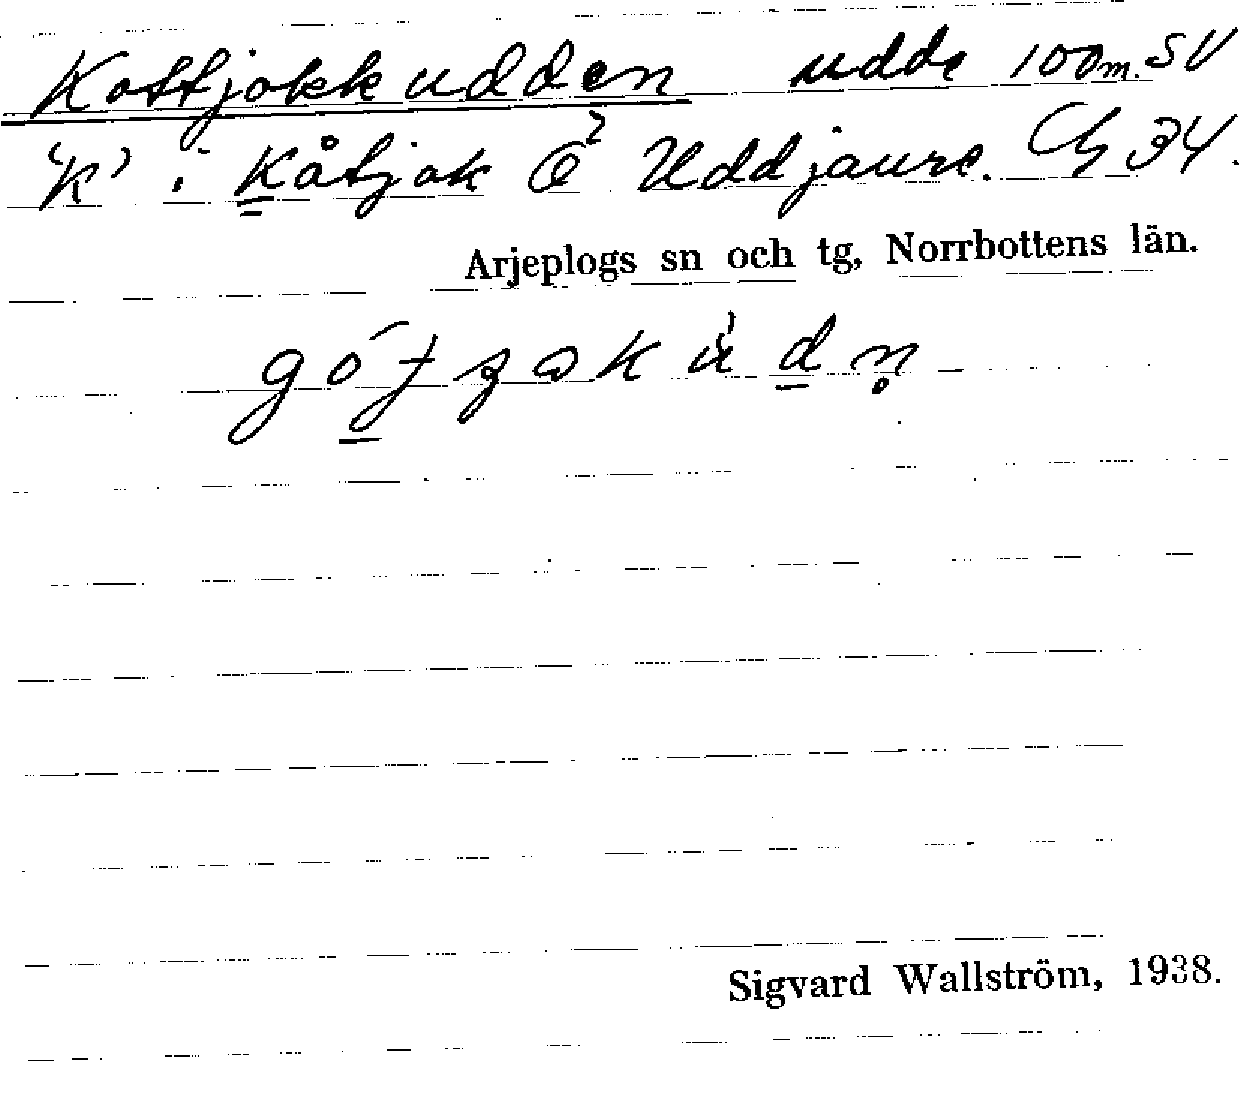 Kottjokkudden udde 100 m. SV
'K' i Kåtjok Ö² Uddjaure. G 34.
Arjeplogs sn och tg, Norrbottens län.
Sigvard Wallström, 1938.